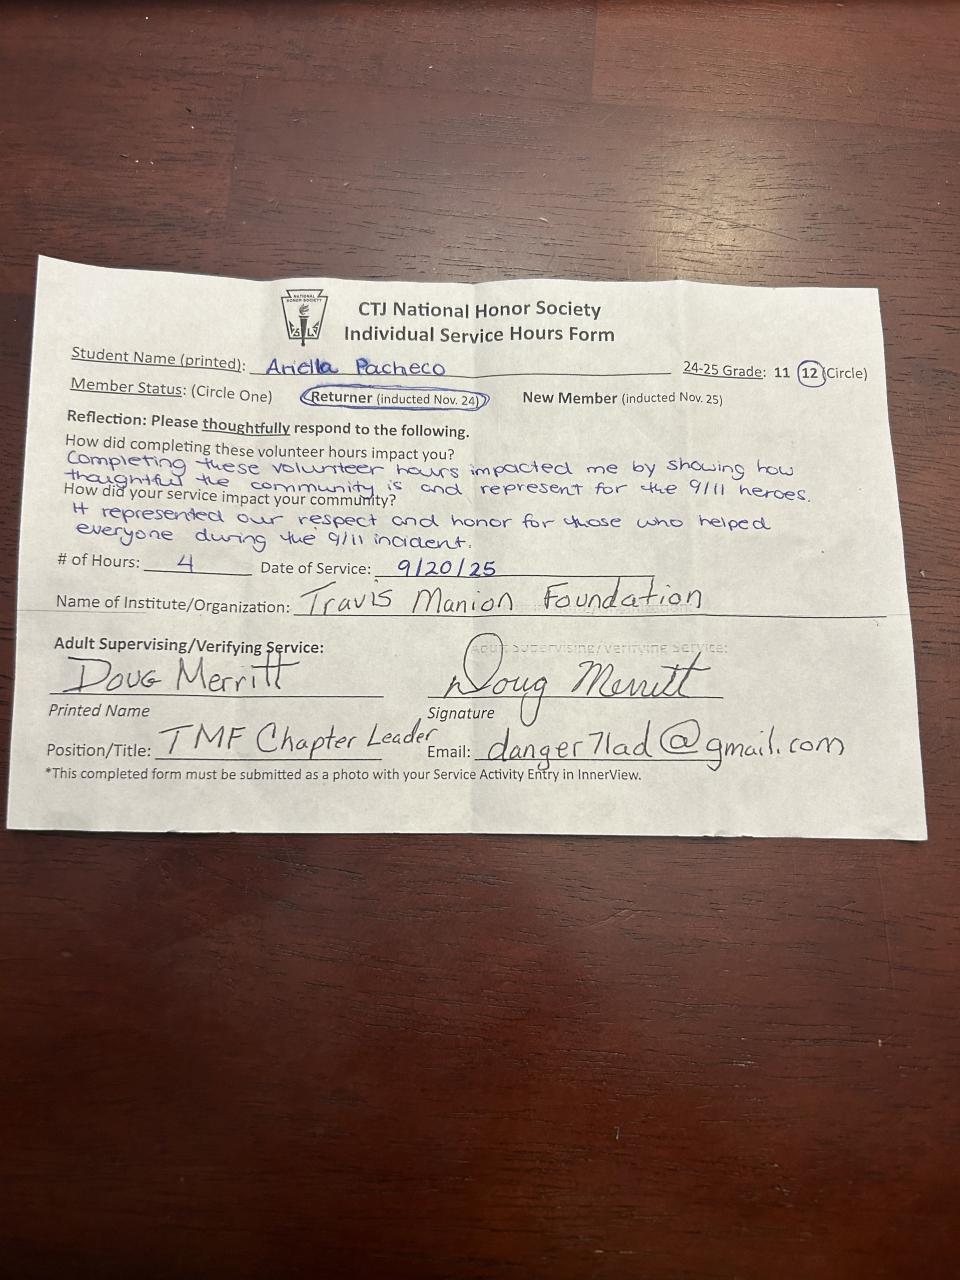 NATIONAL
HONOR SOCIETY
CTJ National Honor Society
Individual Service Hours Form
Student Name (printed): Ariella Pacheco 24-25 Grade: 11 12 (Circle)
Member Status: (Circle One) Returner (inducted Nov. 24) New Member (inducted Nov. 25)
Reflection: Please thoughtfully respond to the following.
How did completing these volunteer hours impact you?
Completing these volunteer hours impacted me by showing how
thoughtful the community is and represent for the 9/11 heroes.
How did your service impact your community?
It represented our respect and honor for those who helped
everyone during the 9/11 incident.
# of Hours: 4 Date of Service: 9/20/25
Name of Institute/Organization: Travis Manion Foundation
Adult Supervising/Verifying Service:
Adult Supervising/Verifying Service:
Doug Merritt Doug Merritt
Printed Name Signature
Position/Title: TMF Chapter Leader Email: danger71ad@gmail.com
*This completed form must be submitted as a photo with your Service Activity Entry in InnerView.